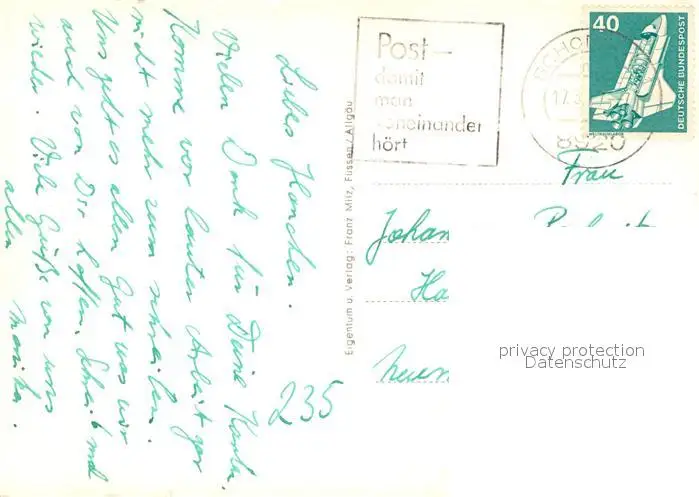 Liebes Hanchen.
Vielen Dank für Deine Karte.
Komme vor lauter Arbeit gar
nicht mehr zum schreiben.
Uns geht es allen Gut was wir
auch von Dir hoffen. Schreib mal
wieder. Viele Grüße von uns
allen Monika.
235
Eigentum u. Verlag: Franz Milz, Füssen/Allgäu
Post –
damit
man
voneinander
hört
SCHON
17.3.
8920
40
DEUTSCHE BUNDESPOST
WELTRAUMLABOR
Frau
Johan
Ha
Neuen
privacy protection
Datenschutz